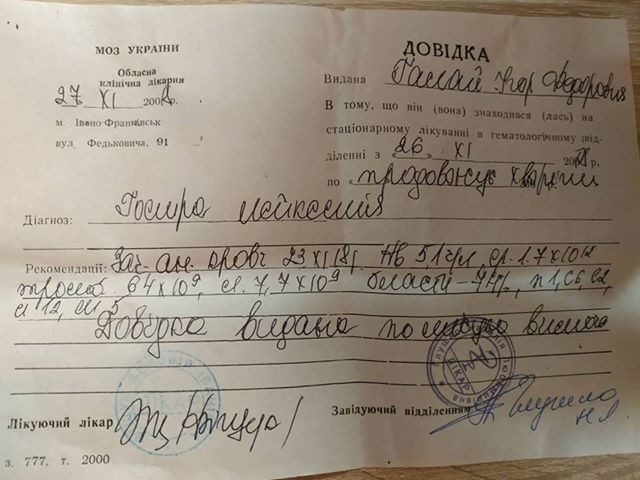 МОЗ УКРАЇНИ
Обласна
клінічна лікарня
27 XI 200 р.
м. Івано-Франківськ
вул. Федьковича, 91
ДОВІДКА
Видана Ігор Федорович
В тому, що він (вона) знаходився (лась) на
стаціонарному лікуванні в гематологічному (від-
діленні з «26» XI 200 р.
по « продовжує хворіти
Діагноз: Гостра лейкемія
Рекомендації: Заг. ан. крові 23 XI 18 Нв 51 г/л, ер. 1.7х10¹²
тромб. 64х10⁹, л. 7,7х10⁹ бласти - 74%, п1, с6, е2,
Довідка видана по місцю вимоги
ЛІКАР
Лікуючий лікар
Завідуючий відділенням
з. 777, т. 2000